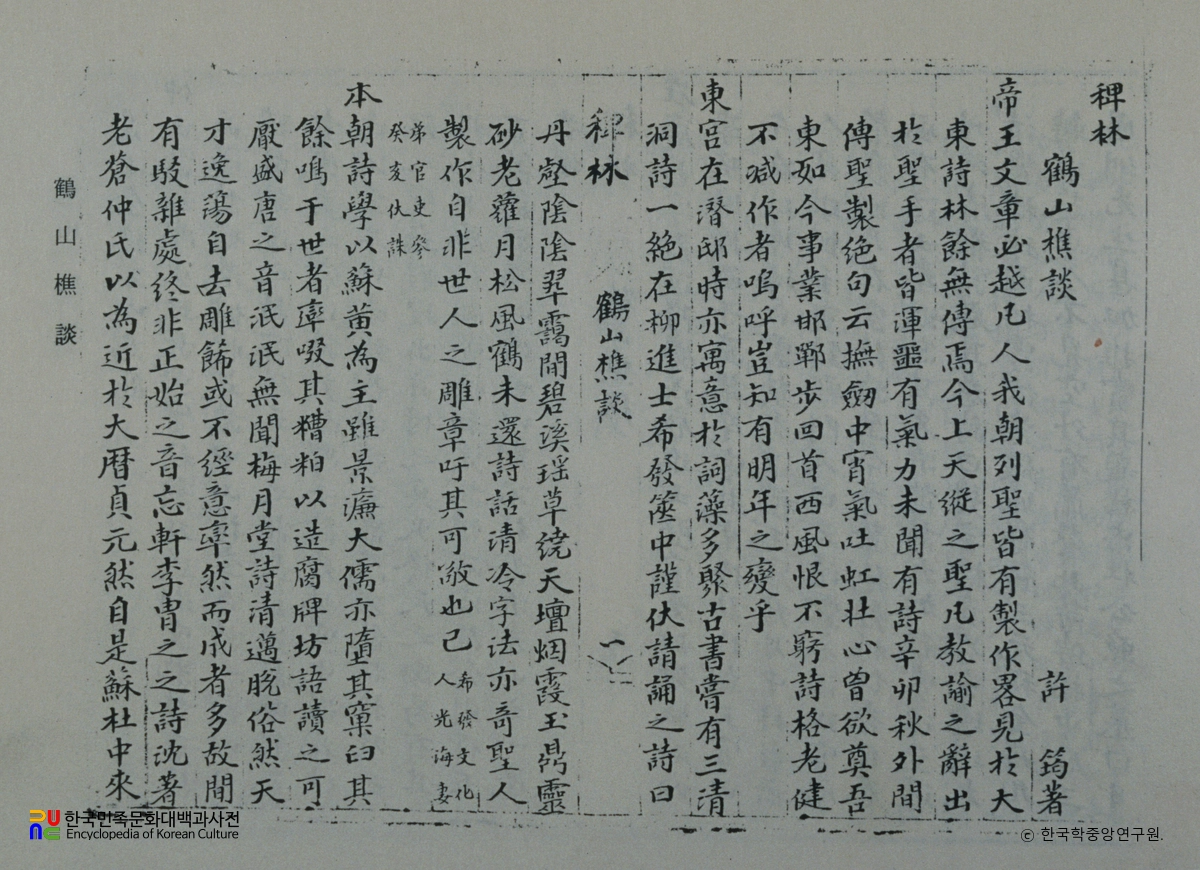 稗林
鶴山樵談
許 筠著
帝王文章必越凡人我朝列聖皆有製作畧見於大
東詩林餘無傳焉今上天縱之聖凡教諭之辭出
於聖手者皆渾噩有氣力未聞有詩辛卯秋外間
傳聖製絶句云撫劒中宵氣吐虹壯心曾欲奠吾
東如今事業邯鄲步回首西風恨不窮詩格老健
不減作者嗚呼豈知有明年之變乎
東宮在潛邸時亦寓意於詞藻多聚古書嘗有三清
洞詩一絶在柳進士希發篋中謹伏請誦之詩曰
稗林 鶴山樵談 一
丹壑陰陰翠靄間碧溪瑶草繞天壇烟霞玉鼎靈
砂老蘿月松風鶴未還詩話清冷字法亦奇聖人
製作自非世人之雕章吁其可敬也已 希發文化
人光海妻
弟官吏參
癸亥伏誅
本朝詩學以蘇黄為主雖景濂大儒亦墮其窠臼其
餘鳴于世者率啜其糟粕以造腐牌坊語讀之可
厭盛唐之音泯泯無聞梅月堂詩清邁脫俗然天
才逸蕩自去雕餙或不經意率然而成者多故間
有駁雜處終非正始之音忘軒李胄之之詩沈著
老蒼仲氏以為近於大曆貞元然自是蘇杜中來
鶴山樵談
한국민족문화대백과사전
Encyclopedia of Korean Culture
ⓒ 한국학중앙연구원.